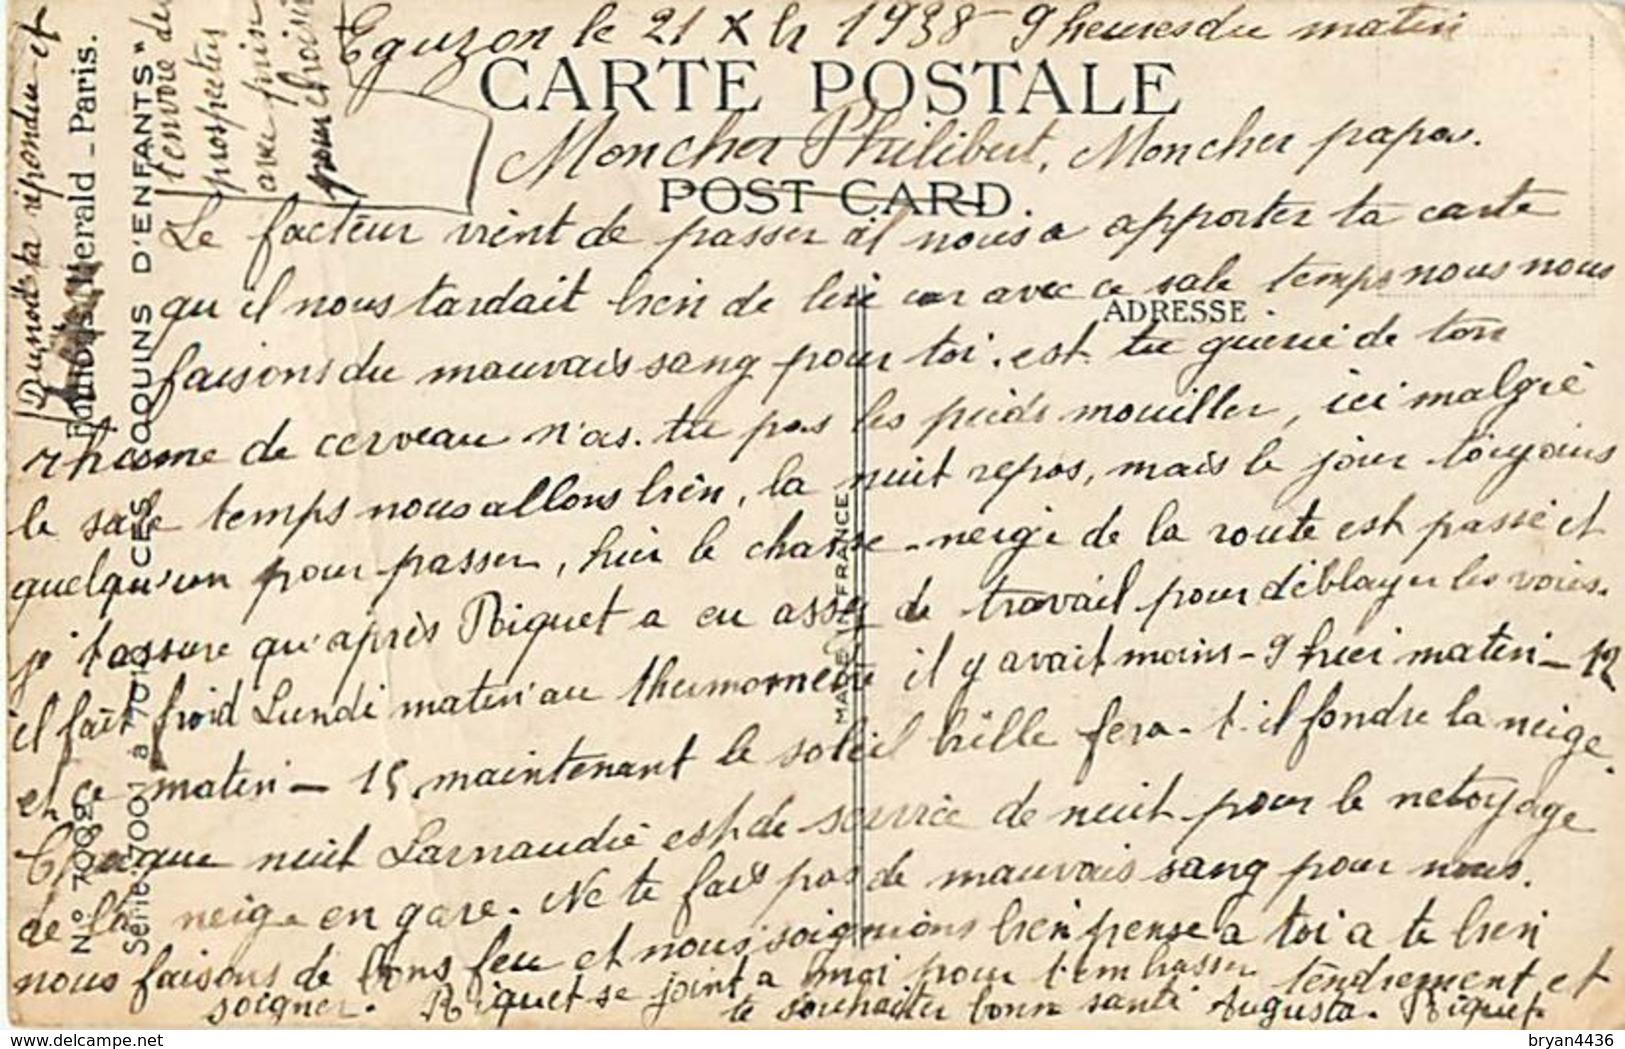 Eguzon le 21 Xh 1938 9 heures du matin
CARTE POSTALE
Mon cher Philibert, Mon cher papa.
POST CARD
Le facteur vient de passer il nous a apporter ta carte
qu il nous tardait bien de lire car avec ce sale temps nous nous
ADRESSE
faisons du mauvais sang pour toi. est tu guérie de ton
rhume de cerveau n'as. tu pas les pieds mouiller, ici malgré
le sale temps nous allons bien, la nuit repos, mais le jour toujours
quelqu'un pour passer, hier le chasse-neige de la route est passé et
je t'assure qu'après Riquet a eu assez de travail pour déblayer les voies.
il fait froid Lundi matin au thermomètre il y avait moins - 9 hier matin - 12
et ce matin - 15, maintenant le soleil brille fera-t-il fondre la neige.
Chaque nuit Larnaudie est de service de nuit pour le netoyage
de la neige en gare. Ne te fais pas de mauvais sang pour nous.
nous faisons de bons feu et nous soignions bien pense a toi a te bien
soigner. Riquet se joint a moi pour t'embrasser tendrement et
te souhaiter bonne santé Augusta. Riquet
MADE IN FRANCE
Dunois ta répondu et
t'envoie des
prospectus
avec prix
pour choisir
Herald _ Paris.
COQUINS D'ENFANTS"
CES
Série: 7001 à 7010
N° 7002
bryan4436